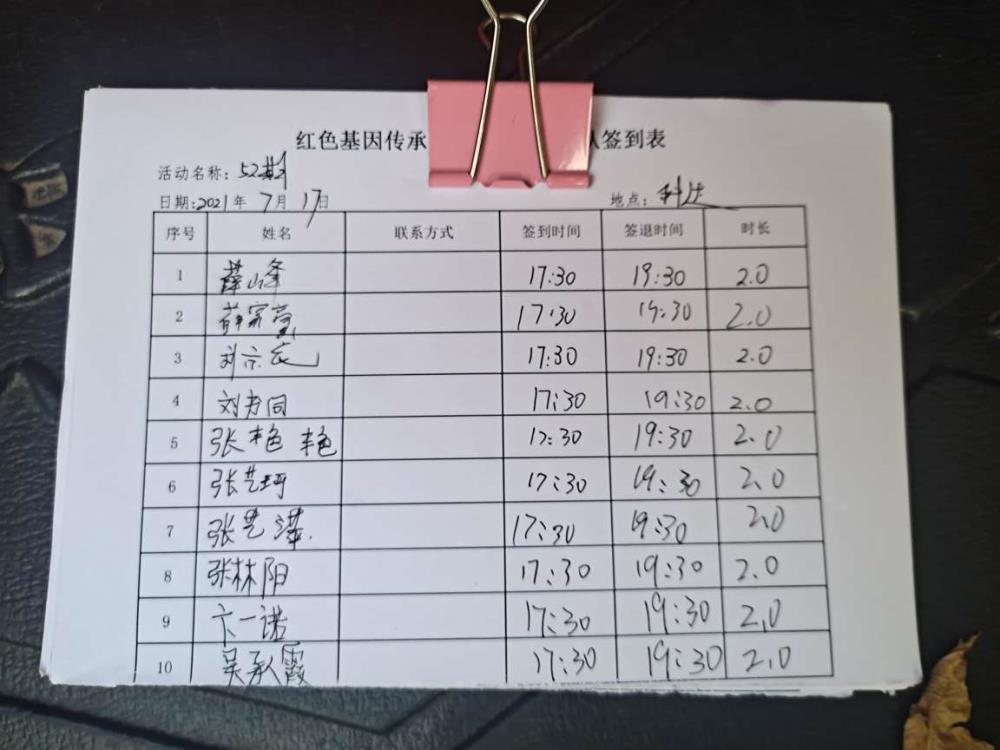 红色基因传承 队签到表
活动名称：52期
日期:2021年 7月 17日 地点：科达
序号 姓名 联系方式 签到时间 签退时间 时长
1 薛山峰 17:30 19:30 2.0
2 薛家莹 17:30 19:30 2.0
3 刘京 17:30 19:30 2.0
4 刘方同 17:30 19:30 2.0
5 张艳艳 17:30 19:30 2.0
6 张艺坷 17:30 19:30 2.0
7 张艺 17:30 19:30 2.0
8 张林阳 17:30 19:30 2.0
9 一诺 17:30 19:30 2.0
10 吴承霞 17:30 19:30 2.0